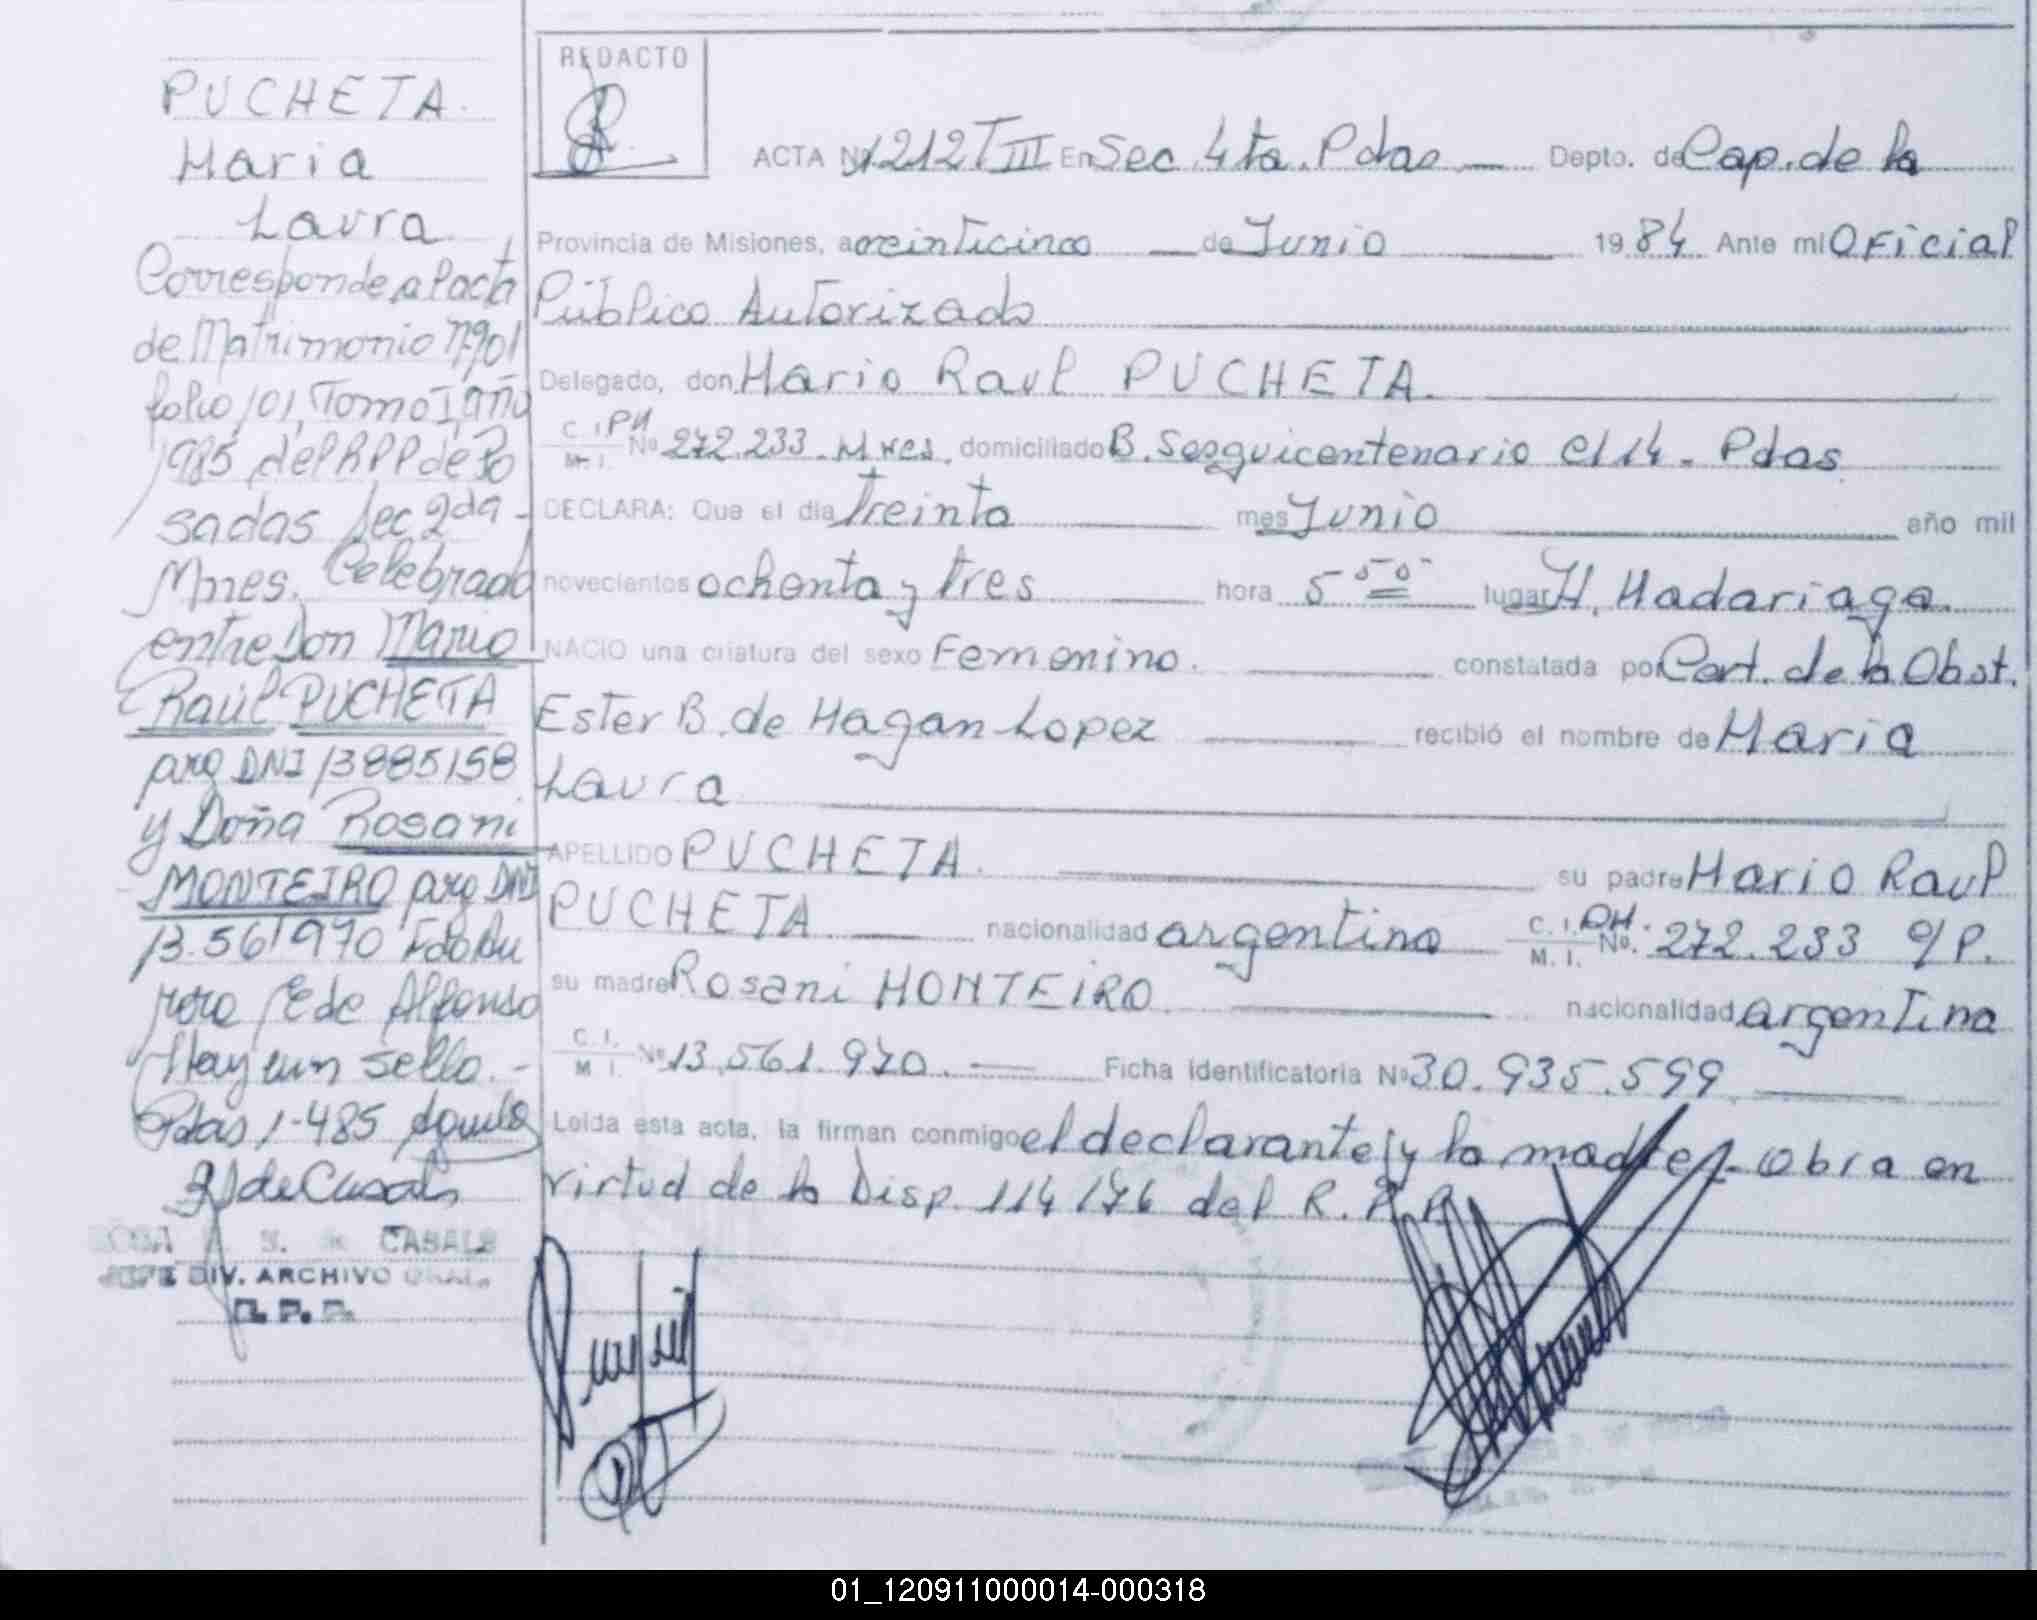 PUCHETA
Maria
Laura
Corresponde al acta
de Matrimonio Nº 101
folio 101, Tomo I, año
1985 del RPP de Po
sadas Sec 2da -
Mnes. Celebrado
entre Don Mario
Raúl PUCHETA
arg DNI 13885158
y Doña Rosani
MONTEIRO arg DNI
13.561970 Fdo
de Alfonso
Hay un sello. -
Pdas 1-4-85
de Casals
CASALS
JEFE DIV. ARCHIVO GRAL.
R. P. P.
REDACTO
ACTA Nº 1212 T III En Sec. 4ta. Pdas — Depto. de Cap. de la
Provincia de Misiones, a veinticinco — de Junio — 19 84 Ante mi Oficial
Público Autorizado
Delegado, don Mario Raul PUCHETA.
C. I. PM
M. I. Nº 272.233 - Mnes. domiciliado B. Sesquicentenario C/14 - Pdas
DECLARA: Que el dia treinta — mes Junio — año mil
novecientos ochenta y tres — hora 5 50 — lugar H. Madariaga.
NACIO una criatura del sexo Femenino. — constatada por Cert. de la Obst.
Ester B. de Hagan Lopez — recibió el nombre de Maria
Laura —
APELLIDO PUCHETA. — su padre Mario Raul
PUCHETA — nacionalidad argentina C. I. PM. M. I. Nº. 272.233 o/P.
su madre Rosani MONTEIRO — nacionalidad argentina
C. I. M I. Nº 13.561.970. — Ficha identificatoria Nº 30.935.599 —
Leida esta acta, la firman conmigo el declarante y la madre - Obra en
virtud de la Disp. 114/76 del R. P. P.
01_120911000014-000318